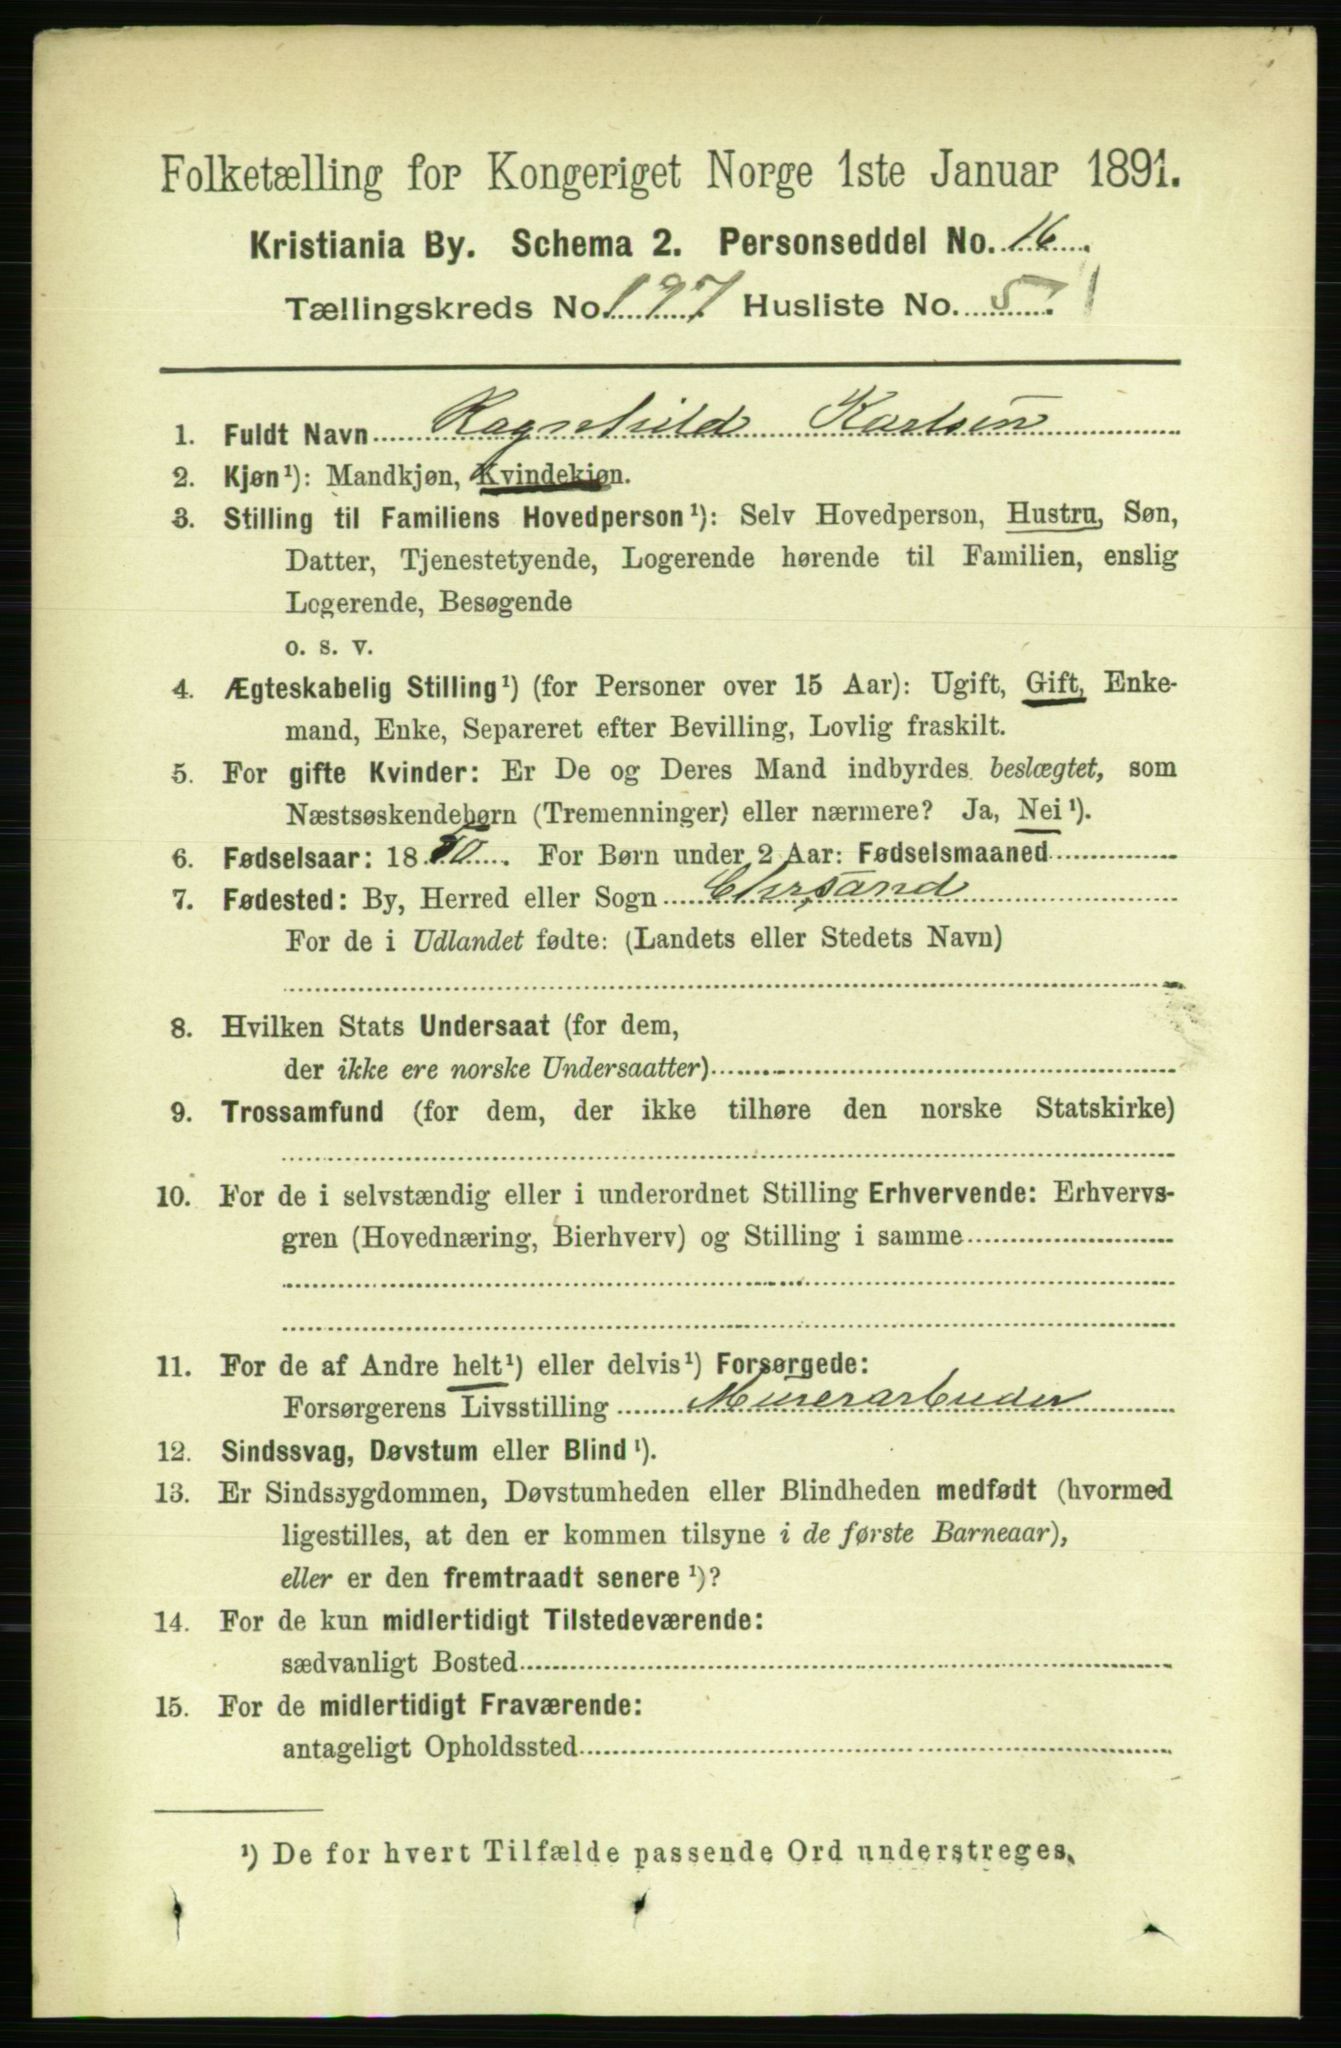 Folketælling for Kongeriget Norge 1ste Januar 1891.
Kristiania By. Schema 2. Personseddel No. 16.
Tællingskreds No. 197. Husliste No. 5. 1
1. Fuldt Navn Ragnhild Karlsen
2. Kjøn¹): Mandkjøn, Kvindekjøn.
3. Stilling til Familiens Hovedperson¹): Selv Hovedperson, Hustru, Søn,
Datter, Tjenestetyende, Logerende hørende til Familien, enslig
Logerende, Besøgende
o. s. v.
4. Ægteskabelig Stilling¹) (for Personer over 15 Aar): Ugift, Gift, Enke-
mand, Enke, Separeret efter Bevilling, Lovlig fraskilt.
5. For gifte Kvinder: Er De og Deres Mand indbyrdes beslægtet, som
Næstsøskendebørn (Tremenninger) eller nærmere? Ja, Nei¹).
6. Fødselsaar: 1850. For Børn under 2 Aar: Fødselsmaaned
7. Fødested: By, Herred eller Sogn Chrsand
For de i Udlandet fødte: (Landets eller Stedets Navn)
8. Hvilken Stats Undersaat (for dem,
der ikke ere norske Undersaatter)
9. Trossamfund (for dem, der ikke tilhøre den norske Statskirke)
10. For de i selvstændig eller i underordnet Stilling Erhvervende: Erhvervs-
gren (Hovednæring, Bierhverv) og Stilling i samme
11. For de af Andre helt¹) eller delvis¹) Forsørgede:
Forsørgerens Livsstilling Murerarbeider
12. Sindssvag, Døvstum eller Blind¹).
13. Er Sindssygdommen, Døvstumheden eller Blindheden medfødt (hvormed
ligestilles, at den er kommen tilsyne i de første Barneaar),
eller er den fremtraadt senere¹)?
14. For de kun midlertidigt Tilstedeværende:
sædvanligt Bosted
15. For de midlertidigt Fraværende:
antageligt Opholdssted
¹) De for hvert Tilfælde passende Ord understreges.